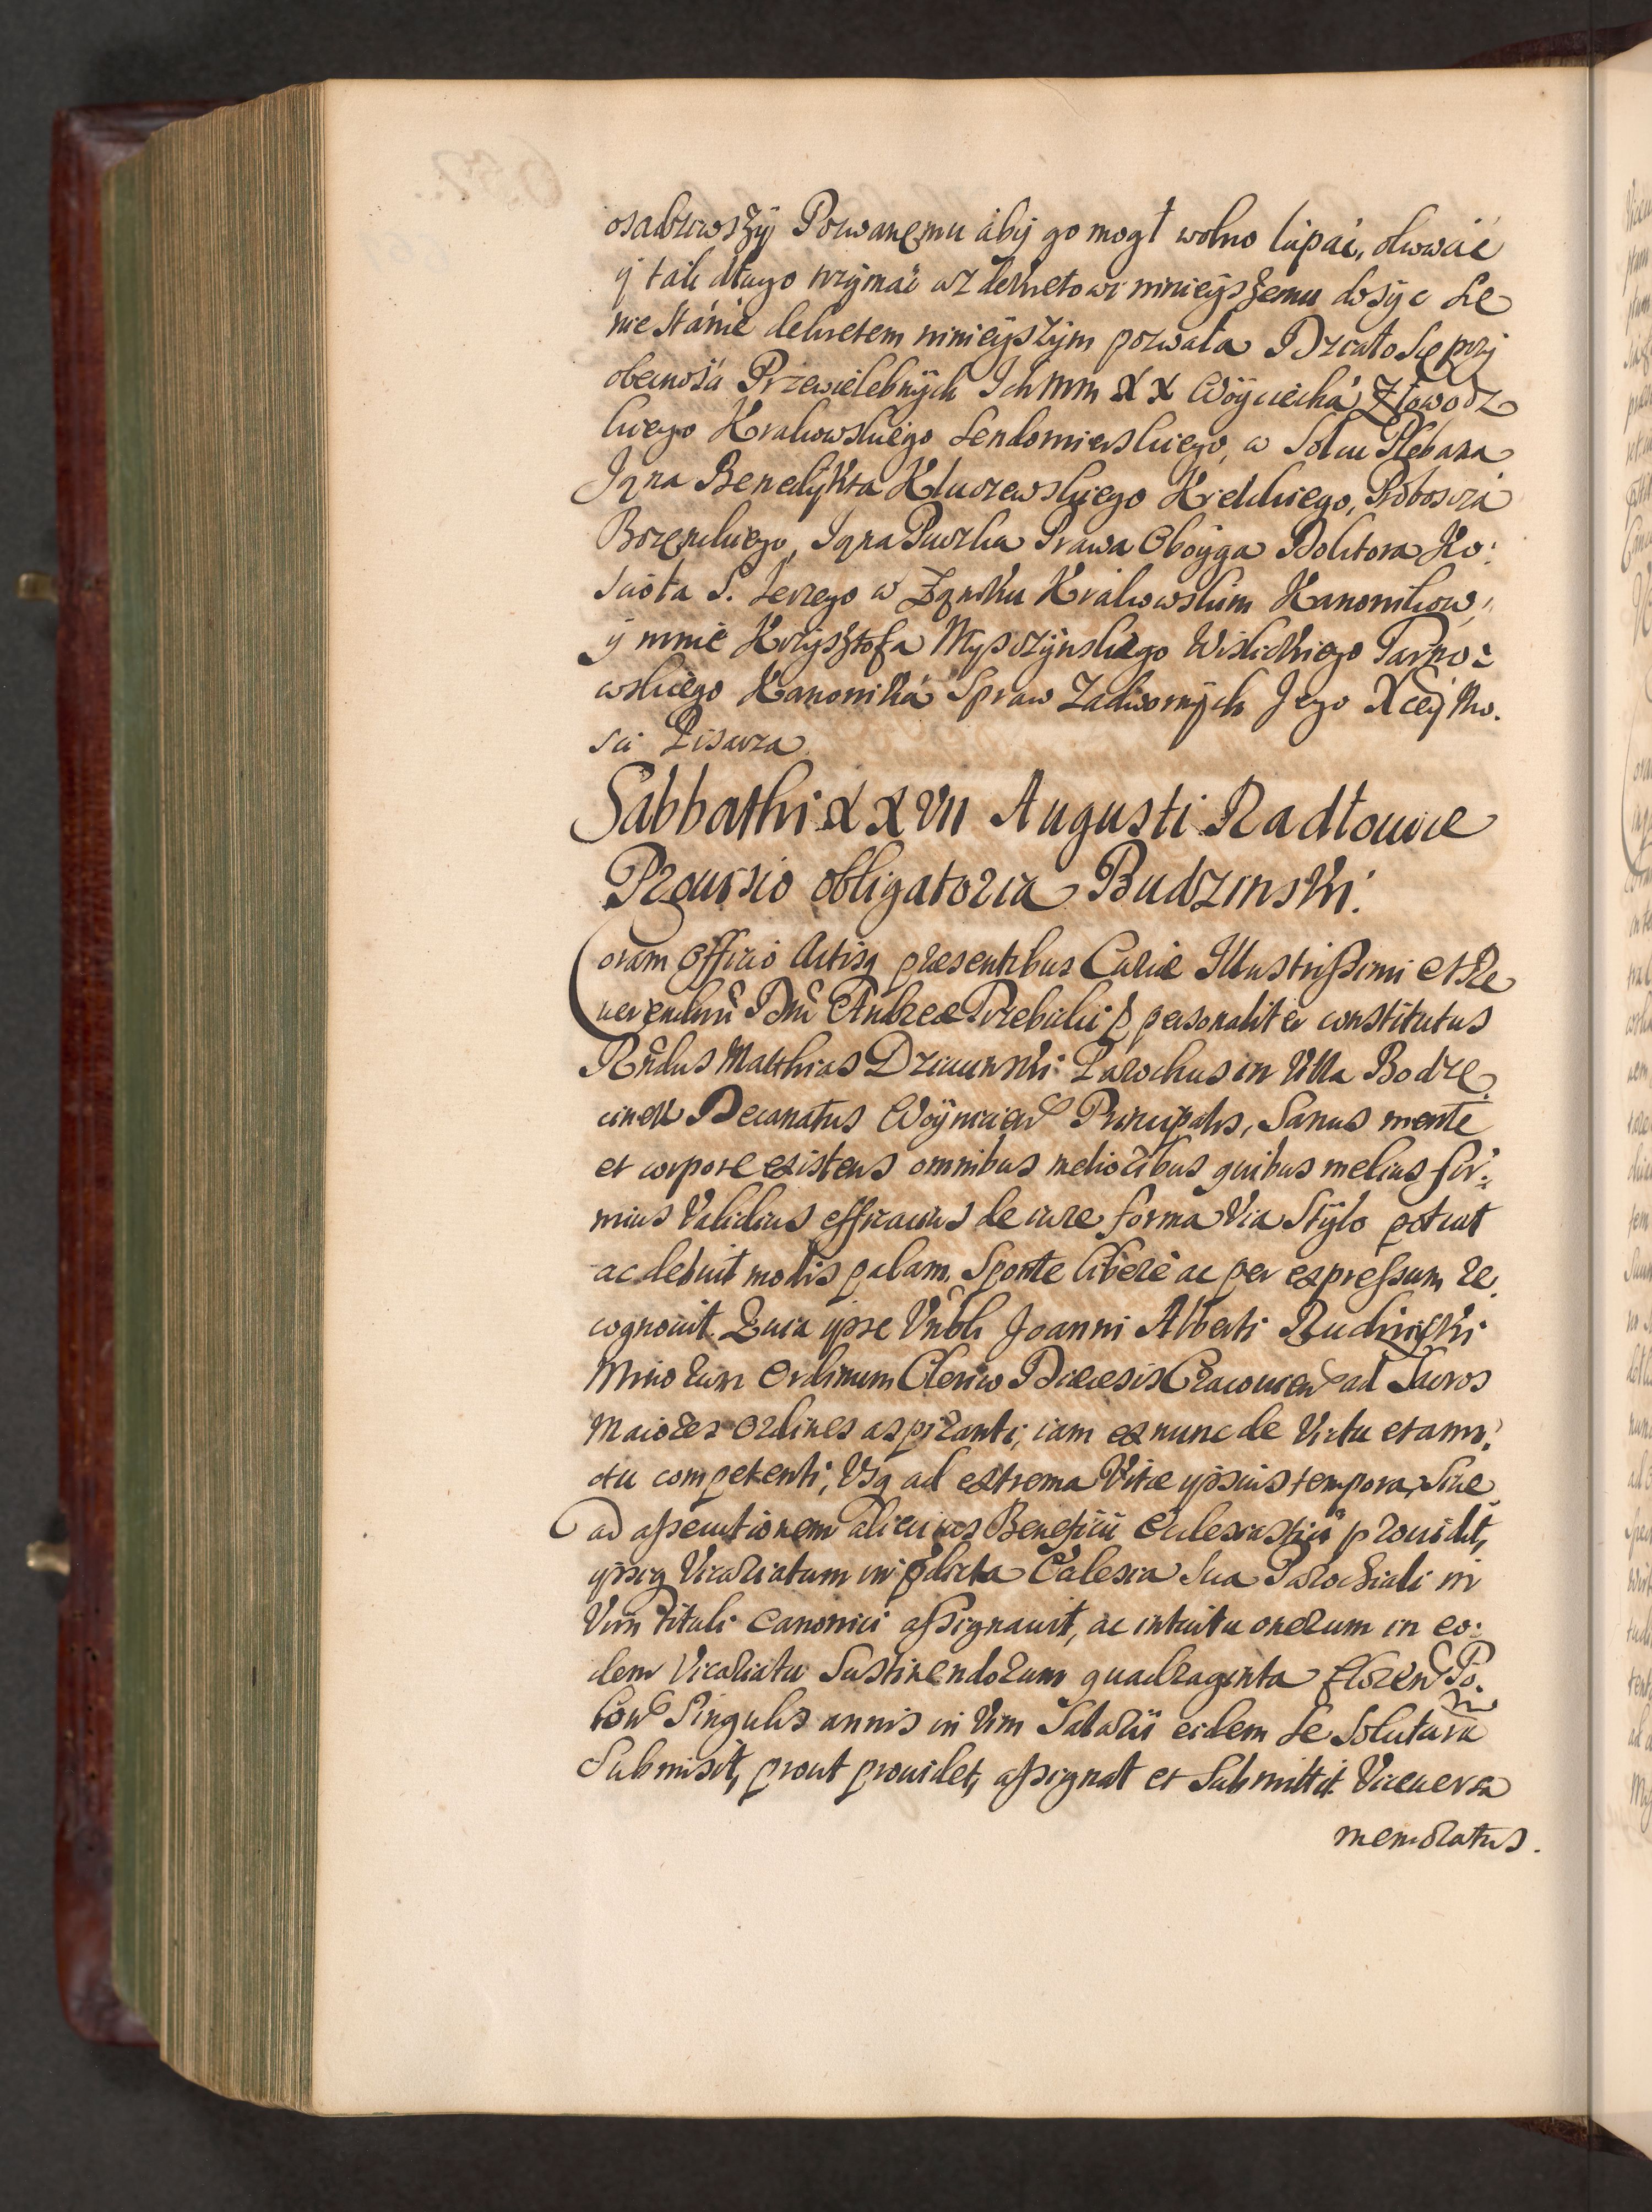 osadziwszy Pozwanemu áby go mogł wolno łapáć, okować
y ták długo trzymáć áz dekretowi ninieyszemu dosyc się
nie stánie dekretem ninieyszym pozwala Dziáło się przy
obecnośći Przewielebnych Ich Mm X X Woyciechá
kiego Krakowskiego Sendomirskiego, w Solcu Plebana
Igna Benedykta Kluczewskiego Kieleckiego, Proboszczá
Igna Puczka Prawa Oboyga Doktora Ko:
sciołá S. Jerzego w Zamku Krákowskim Kanonikow,
y mnie Krzysztofa Myszczynskiego Wislickiego Tarno:
wskiego Kanoniká Spraw Zadwornych Jego Xcey Mo.
sci Pisarza
Sabbathi XXVII Augusti Radłoviæ
Provisio obligatoria Budzinski.
Coram Officio Actisq præsentibus Curiæ Illustrissimi et Re
verendissi Dni Andreæ Trzebicki p personaliter constitutus
Rndus Matthias Parochus in Villa Bodze
cinen Decanatus Woyniciens Principalis, Sanus mente
et corpore existens omnibus melioribus quibus melius fir:
mius Validius efficacius de iure forma Via Stylo potuit
ac debuit modis palam, Sponte libere ac per expressum re.
cognovit. Quia ipse Vnbli Joanni Alberti Rudnicki
Minorum Ordinum Clerico Diæcesis Cracovien ad Sacros
Maiores Ordines aspiranti, iam ex nunc de Victu et ami,
ctu competenti, Vsq ad extrema Vitæ ipsius tempora, Siue
ad assecutionem alicuius Beneficii Ecclesiastici prouidit,
ipsiq Vicariatum in pdicta Ecclesia Sua Parochiali in
Vim tituli Canonici assignauit, ac intuitu onerum in eo:
dem Vicariatu Sustinendorum quadraginta floren Po.
lon Singulis annis in Vim Salarii eidem Se Soluturum
Submisit, prout prouidet, assignat et Submittit. Viceuersa
memoratus.